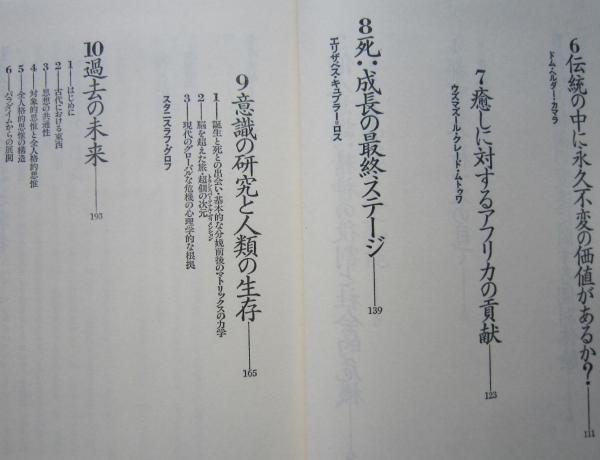 6 伝統の中に永久不変の価値があるか?——111
ドム・ヘルダー・カマラ
7 癒しに対するアフリカの貢献——123
ウスマズールー・クレード・ムトゥワ
8 死:成長の最終ステージ——139
エリザベス・キュブラー=ロス
9 意識の研究と人類の生存——165
1——誕生と死との出会い・基本的な分娩前後のマトリックスの力学
2——脳を超えた旅・超個の次元
3——現代のグローバルな危機の心理学的な根拠
スタニスラフ・グロフ
10 過去の未来——193
1——はじめに
2——古代における東西
3——思想の共通性
4——対象的思惟と全人格的思惟
5——全人格的思惟の構造
6——パラダイムからの展開